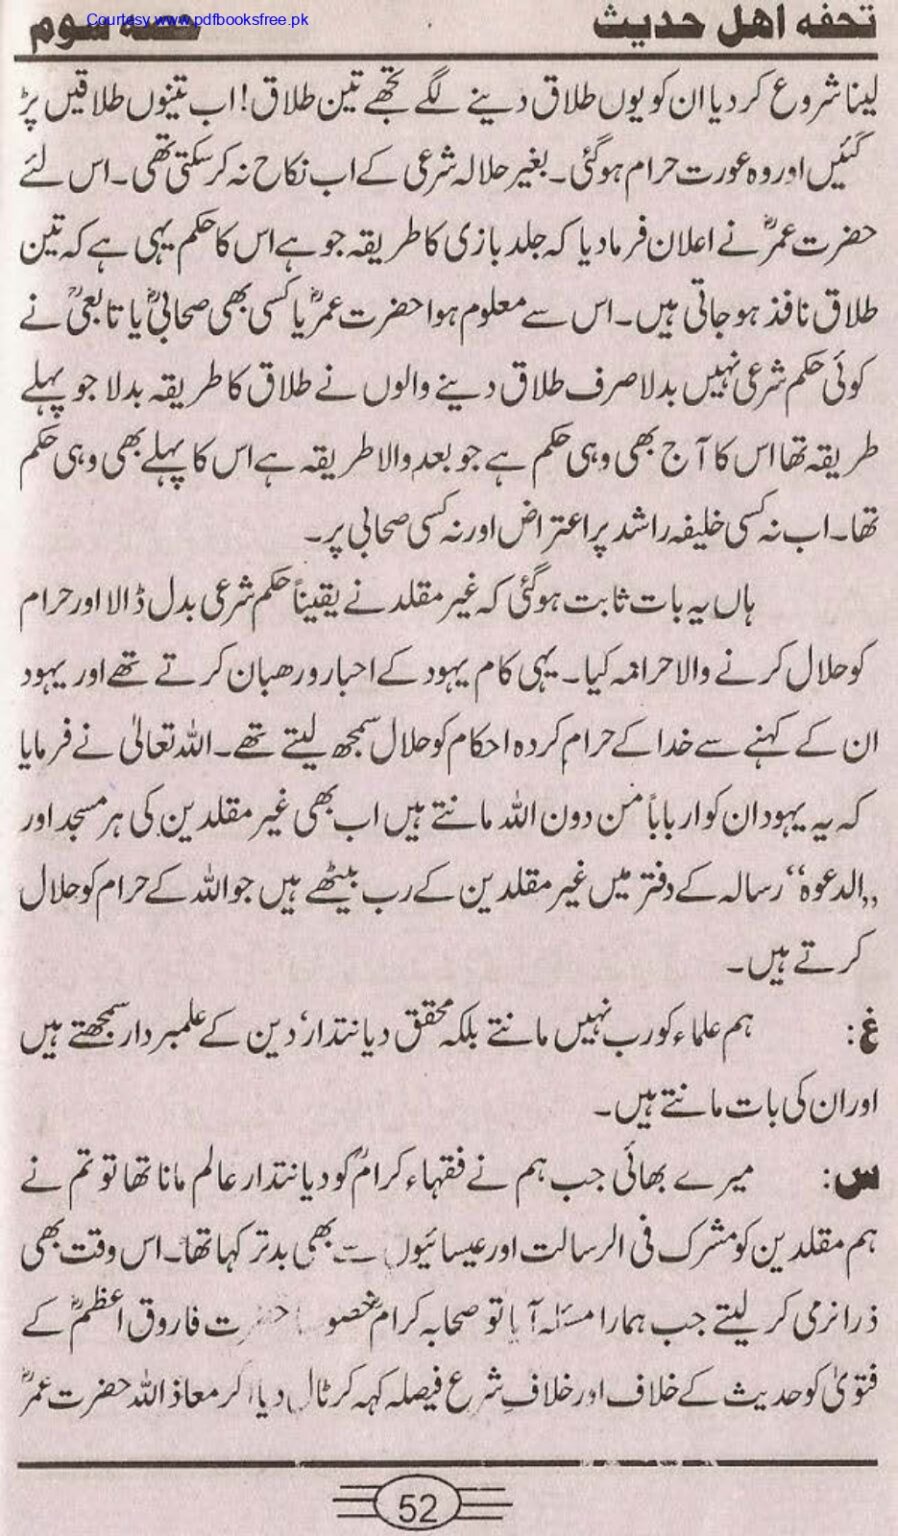 تحفہ اھل حدیث
حصہ سوم
Courtesy www.pdfbooksfree.pk
لینا شروع کر دیا ان کو یوں طلاق دینے لگے تجھے تین طلاق! اب تینوں طلاقیں پڑ
گئیں اور وہ عورت حرام ہو گئی۔ بغیر حلالہ شرعی کے اب نکاح نہ کر سکتی تھی۔ اس لئے
حضرت عمرؓ نے اعلان فرما دیا کہ جلد بازی کا طریقہ جو ہے اس کا حکم یہی ہے کہ تین
طلاق نافذ ہو جاتی ہیں۔ اس سے معلوم ہوا حضرت عمرؓ یا کسی بھی صحابیؓ یا تابعیؒ نے
کوئی حکم شرعی نہیں بدلا صرف طلاق دینے والوں نے طلاق کا طریقہ بدلا جو پہلے
طریقہ تھا اس کا آج بھی وہی حکم ہے جو بعد والا طریقہ ہے اس کا پہلے بھی وہی حکم
تھا۔ اب نہ کسی خلیفہ راشد پر اعتراض اور نہ کسی صحابی پر۔
ہاں یہ بات ثابت ہو گئی کہ غیر مقلد نے یقیناً حکم شرعی بدل ڈالا اور حرام
کو حلال کرنے والا حرامہ کیا۔ یہی کام یہود کے احبار و رھبان کرتے تھے اور یہود
ان کے کہنے سے خدا کے حرام کردہ احکام کو حلال سمجھ لیتے تھے۔ اللہ تعالیٰ نے فرمایا
کہ یہ یہود ان کو ارباباً من دون اللہ مانتے ہیں اب بھی غیر مقلدین کی ہر مسجد اور
„الدعوہ“ رسالہ کے دفتر میں غیر مقلدین کے رب بیٹھے ہیں جو اللہ کے حرام کو حلال
کرتے ہیں۔
غ: ہم علماء کو رب نہیں مانتے بلکہ محقق دیانتدار، دین کے علمبردار سمجھتے ہیں
اور ان کی بات مانتے ہیں۔
س: میرے بھائی جب ہم نے فقہاء کرامؒ کو دیانتدار عالم مانا تھا تو تم نے
ہم مقلدین کو مشرک فی الرسالت اور عیسائیوں سے بھی بدتر کہا تھا۔ اس وقت بھی
ذرا نرمی کر لیتے جب ہمارا مسئلہ آیا تو صحابہ کرامؓ خصوصاً حضرت فاروق اعظمؓ کے
فتویٰ کو حدیث کے خلاف اور خلافِ شرع فیصلہ کہہ کر ٹال دیا، کر معاذ اللہ حضرت عمرؓ
52